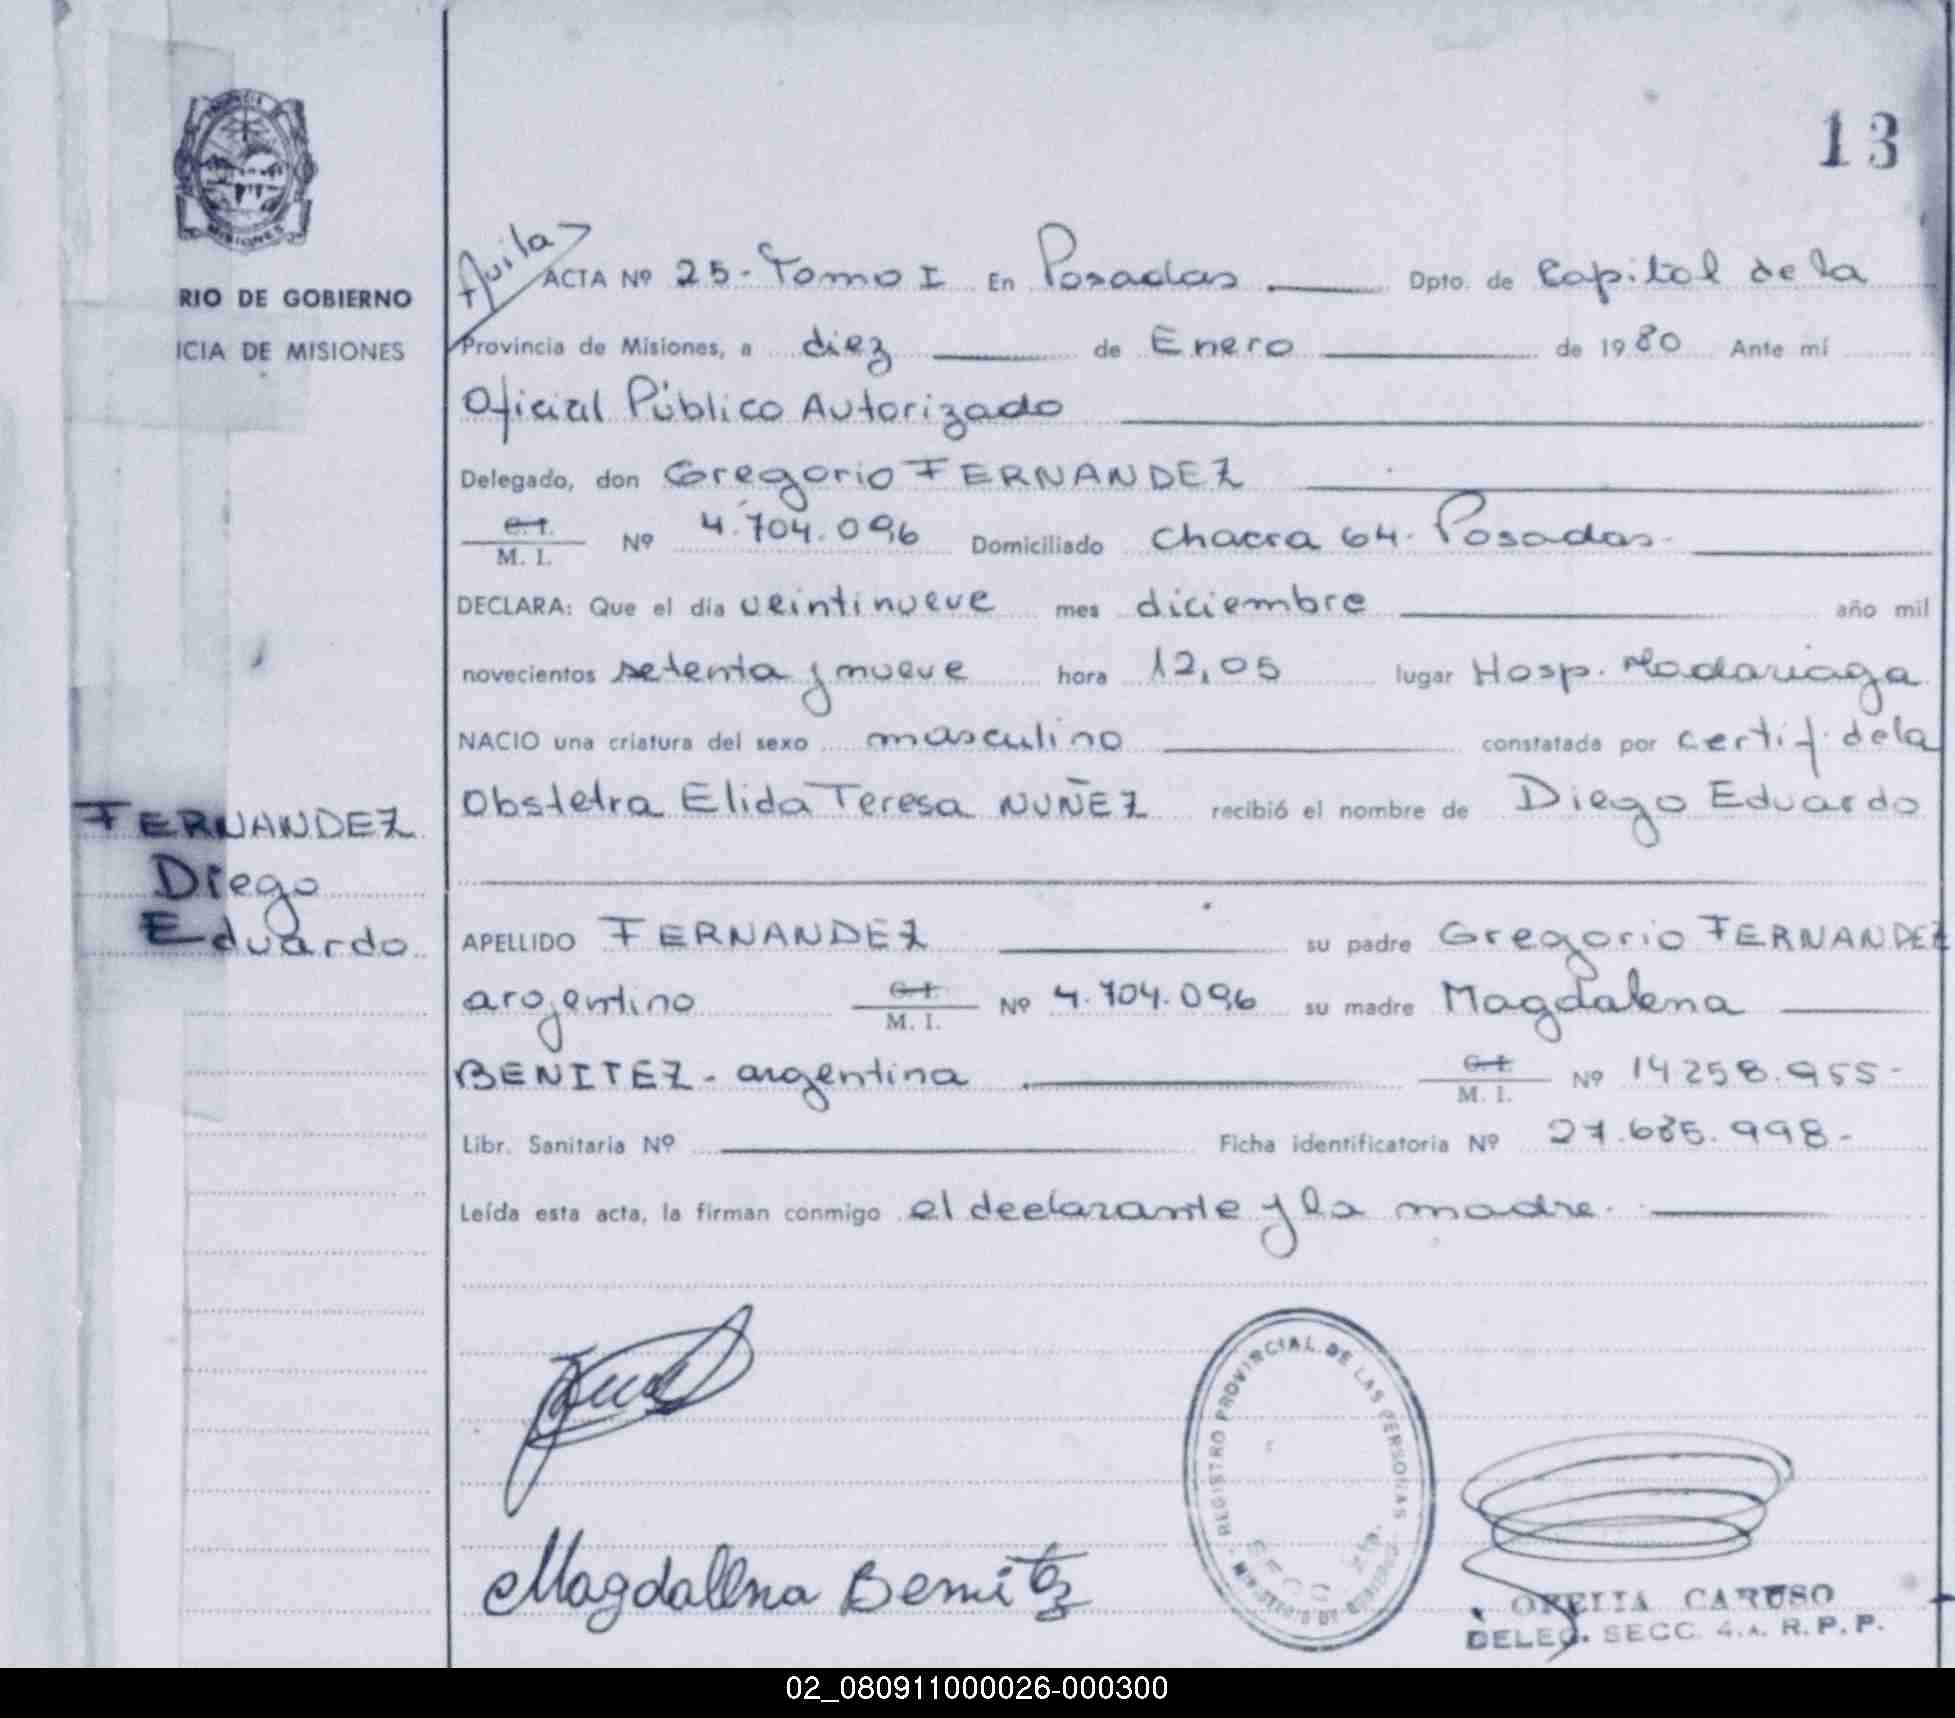 13
PROVINCIA
MISIONES
RIO DE GOBIERNO
ICIA DE MISIONES
Avila
ACTA Nº 25 - Tomo I En Posadas Dpto. de Capital de la
Provincia de Misiones, a diez de Enero de 1980 Ante mí
Oficial Público Autorizado
Delegado, don Gregorio FERNANDEZ
C. I.
M. I. Nº 4.704.096 Domiciliado chacra 64. Posadas.
DECLARA: Que el día veintinueve mes diciembre año mil
novecientos setenta y nueve hora 12,05 lugar Hosp. Madariaga
NACIO una criatura del sexo masculino constatada por certif. de la
Obstetra Elida Teresa NUÑEZ recibió el nombre de Diego Eduardo
FERNANDEZ
Diego
Eduardo.
APELLIDO FERNANDEZ su padre Gregorio FERNANDEZ
argentino C. I. M. I. Nº 4.704.096 su madre Magdalena
BENITEZ - argentina C. I. M. I. Nº 14258.955-
Libr. Sanitaria Nº Ficha identificatoria Nº 27.685.998-
Leída esta acta, la firman conmigo el declarante y la madre.
Magdalena Benitez
REGISTRO PROVINCIAL DE LAS PERSONAS
MINISTERIO DE GOBIERNO
SECC.
OFELIA CARUSO
DELEG. SECC. 4.a. R. P. P.
02_080911000026-000300